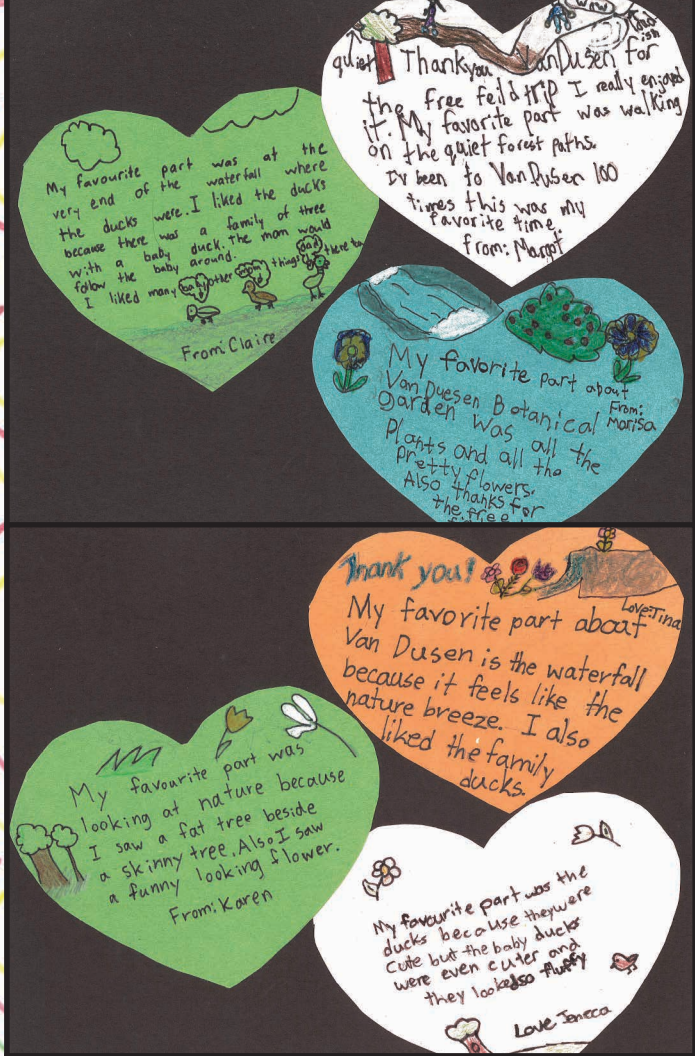 My favourite part was at the
very end of the waterfall where
the ducks were. I liked the ducks
because there was a family of tree
with a baby duck. The mom would
follow the baby around.
I liked many other things there to
baby
mom
dad
From: Claire
quiet
Thankyou VanDusen for
the free feild trip I really enjoyed
it. My favorite part was walking
on the quiet forest paths.
I'v been to VanDusen 100
times this was my
favorite time.
from: Margot
My favorite part about
Van Duesen Botanical
Garden was all the
Plants and all the
pretty flowers.
Also thanks for
the free
From:
Marisa
Thank you!
Love: Tina
My favorite part about
Van Dusen is the waterfall
because it feels like the
nature breeze. I also
liked the family
ducks.
My favourite part was
looking at nature because
I saw a fat tree beside
a skinny tree. Also I saw
a funny looking flower.
From: Karen
My favourite part was the
ducks because they were
Cute but the baby ducks
were even cuter and
they looked so fluffy
Love Jeneca